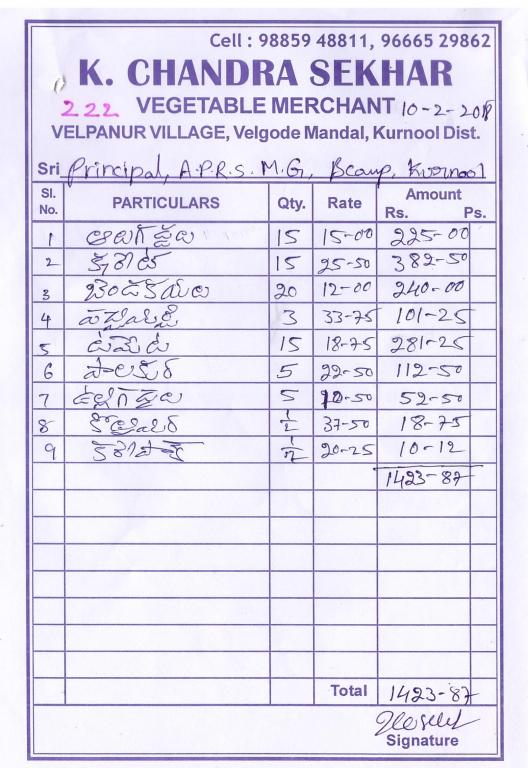 Cell : 98859 48811, 96665 29862
K. CHANDRA SEKHAR
222 VEGETABLE MERCHANT 10-2-2018
VELPANUR VILLAGE, Velgode Mandal, Kurnool Dist.
Sri Principal, A.P.R.S. M.G, Bcamp, Kurnool
Sl. No. PARTICULARS Qty. Rate Amount Rs. Ps.
1 ఆలుగడ్డలు 15 15-00 225-00
2 క్యారెట్ 15 25-50 382-50
3 బెండకాయలు 20 12-00 240-00
4 పచ్చిమిర్చి 3 33-75 101-25
5 టమేట 15 18-75 281-25
6 పాలకూర 5 22-50 112-50
7 ఉల్లిగడ్డలు 5 10-50 52-50
8 కొత్తిమీర ½ 37-50 18-75
9 కరేపాక్ ½ 20-25 10-12
1423-87
Total 1423-87
Signature